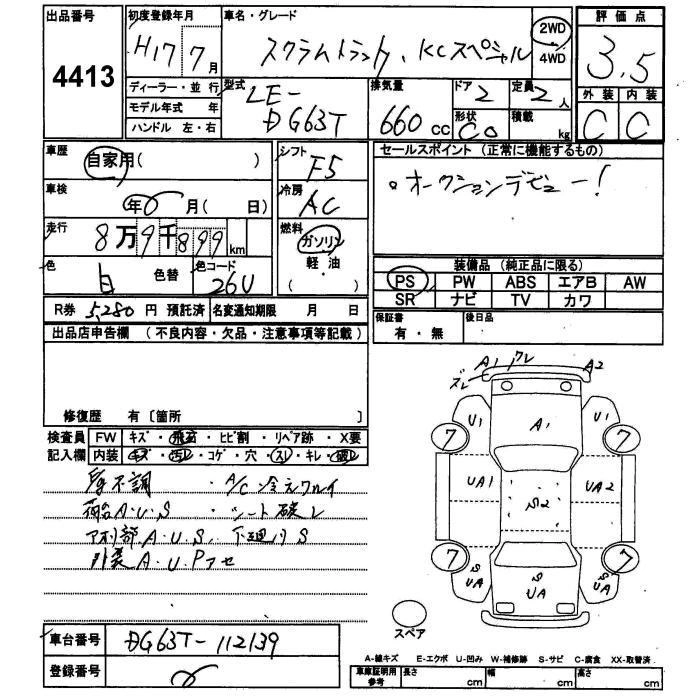 出品番号
4413
初度登録年月
H17 7月
ディーラー・並行
モデル年式 年
ハンドル 左・右
車名・グレード
スクラムトラック、KCスペシャル
2WD
4WD
評価点
3.5
外装 内装
C C
型式
LE-
DG63T
排気量
660 cc
ドア 2
形状 CO
定員 2人
積載 kg
車歴
自家用( )
車検
年 月( 日)
走行
8万9千899km
色
白 色替
色コード
26U
シフト
F5
冷房
AC
燃料
ガソリン
軽・油
( )
セールスポイント (正常に機能するもの)
。オークションデビュー!
装備品 (純正品に限る)
PS PW ABS エアB AW
SR ナビ TV カワ
保証書
有・無
後日品
R券 5,280 円 預託済 名変通知期限 月 日
出品店申告欄 (不良内容・欠品・注意事項等記載)
修復歴 有〔箇所 〕
検査員 FW キズ・飛石・ヒビ割・リペア跡・X要
記入欄 内装 キズ・汚レ・コゲ・穴・スレ・キレ・破レ
不調 ・A/C冷えワルイ
荷台A.U.S ・シート破レ
アオリ部.A.U.S. 下廻りS
外装A.U.Pフセ
車台番号 DG63T-112139
登録番号
A1 ワレ A2
ズレ
U1 A1 U1
7 7
UA1 S2 UA2
7 7
S UA S UA S UA
スペア
A-線キズ E-エクボ U-凹み W-補修跡 S-サビ C-腐食 XX-取替済
車庫証明用参考 長さ cm 幅 cm 高さ cm